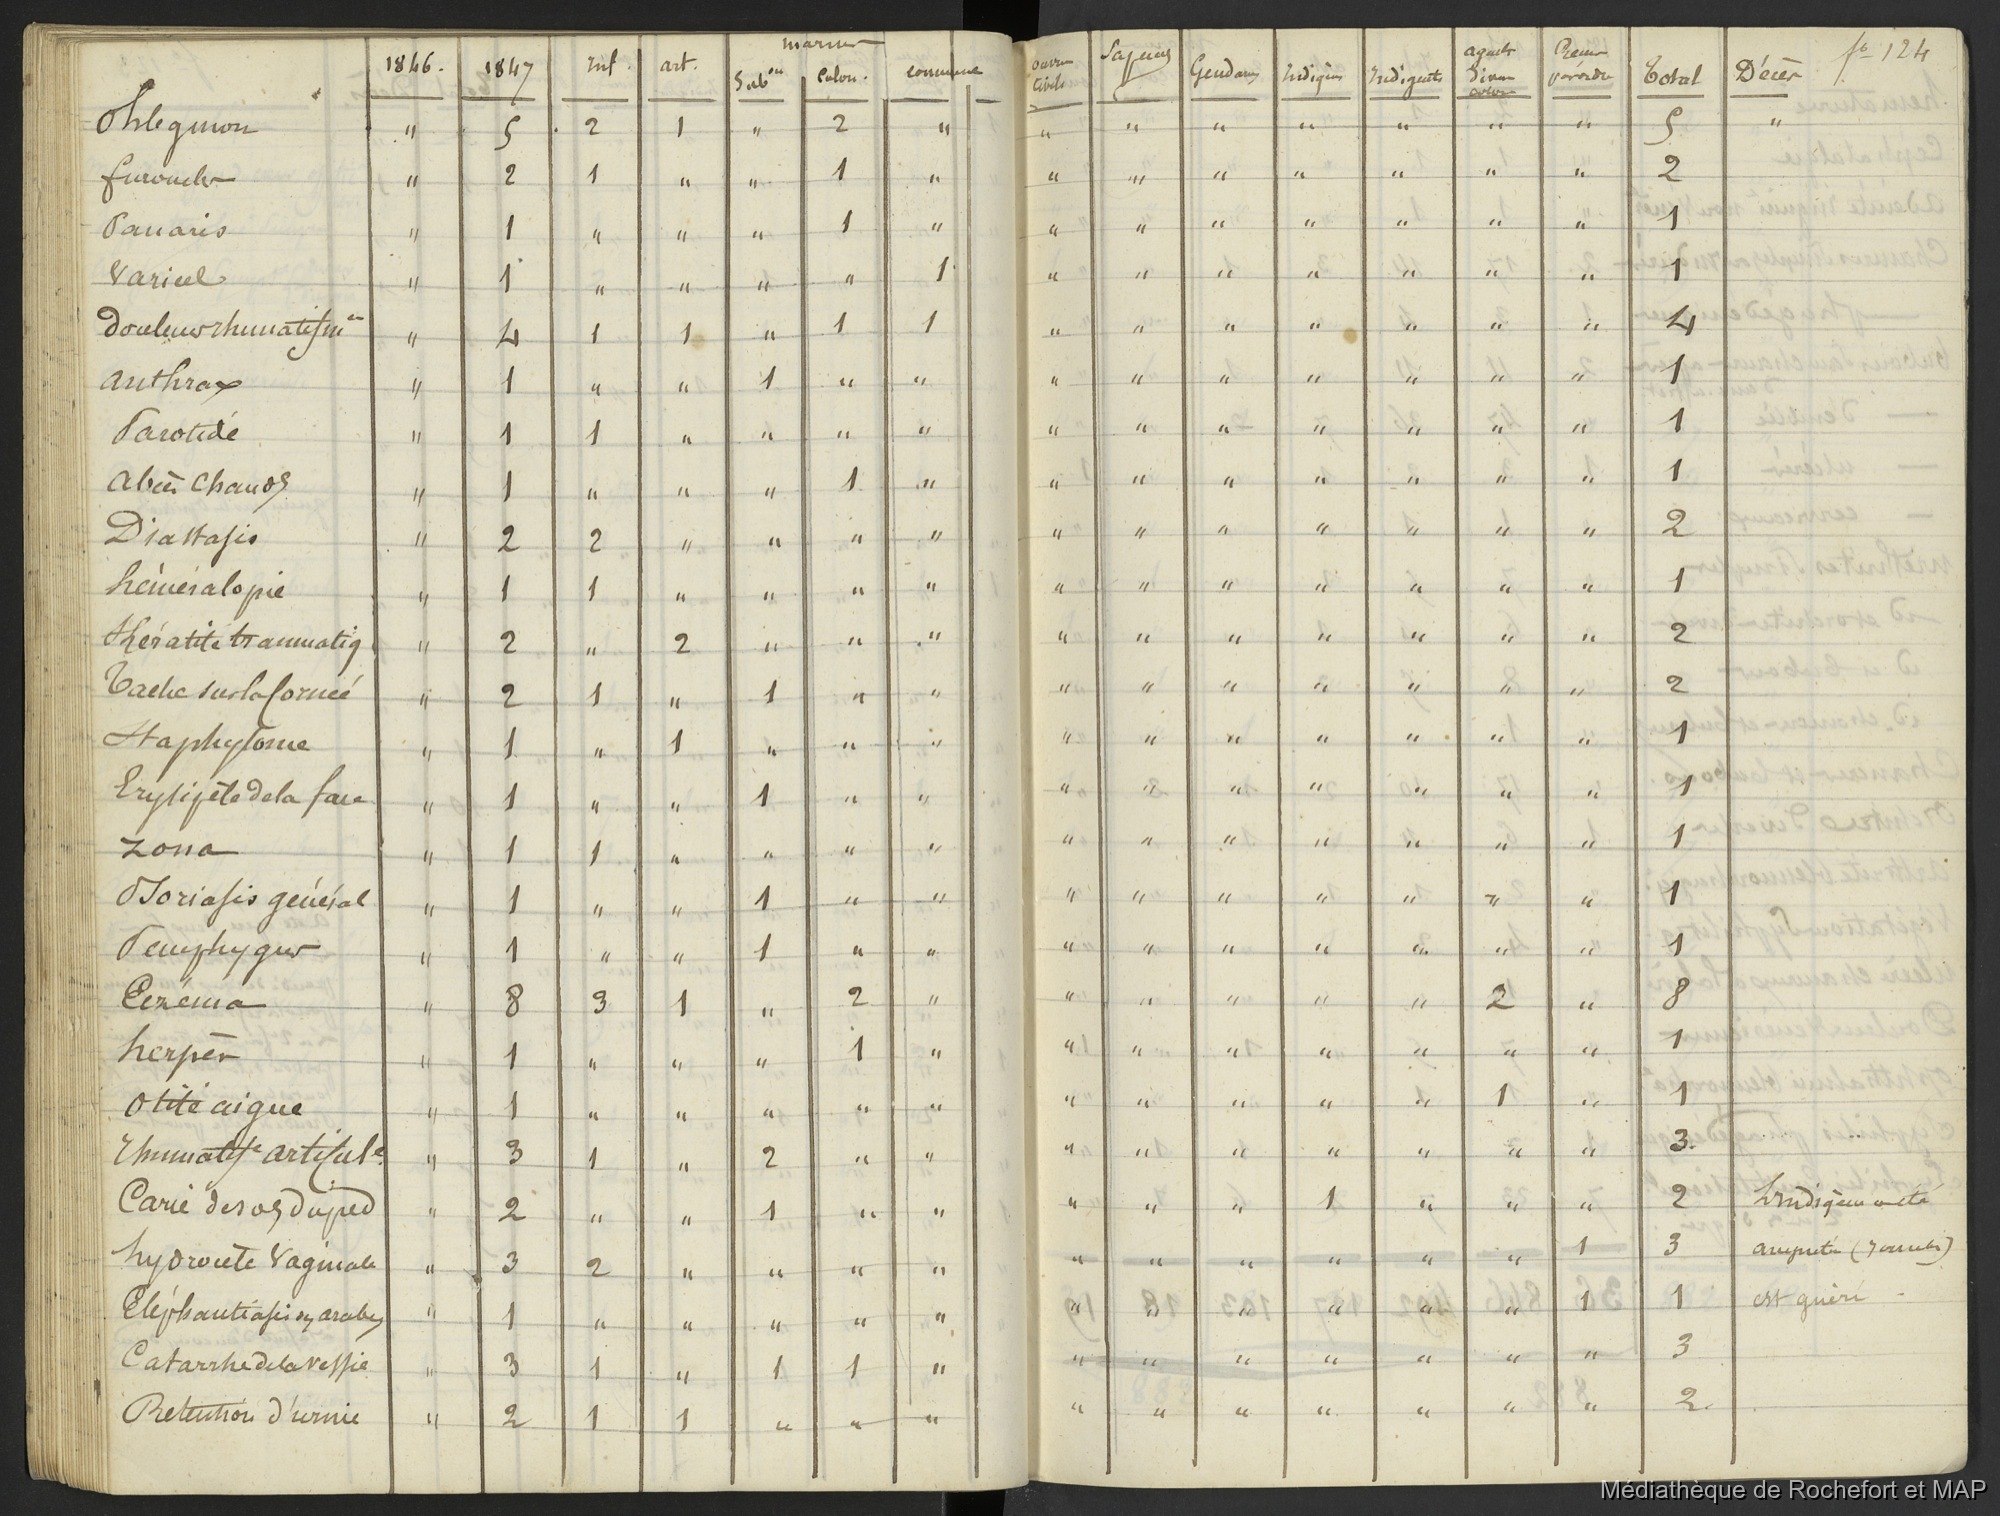 fo 124
marine
1846. 1847 inf. art. Subon colon. commune ouvr civils Sapeurs Gendarm indigèn indigents agents divers colon Total Décès
Phlegmon " 5 2 1 " 2 " " " " " " " " 5 "
furoncles " 2 1 " " 1 " " " " " " " " 2
Panaris " 1 " " " 1 " " " " " " " " 1
Varicel " 1 " " " " 1 " " " " " " " 1
Douleurs rhumatism " 4 1 1 " 1 1 " " " " " " " 4
anthrax " 1 " " 1 " " " " " " " " " 1
Parotide " 1 1 " " " " " " " " " " " 1
Abcès chauds " 1 " " " 1 " " " " " " " " 1
Diastasis " 2 2 " " " " " " " " " " " 2
héméralopie " 1 1 " " " " " " " " " " " 1
Kératite traumatiq " 2 " 2 " " " " " " " " " " 2
Tache sur la cornée " 2 1 " 1 " " " " " " " " " 2
Staphylome " 1 " 1 " " " " " " " " " " 1
Erysipèle de la face " 1 " " 1 " " " " " " " " " 1
Zona " 1 1 " " " " " " " " " " " 1
Psoriasis général " 1 " " 1 " " " " " " " " " 1
Pemphygus " 1 " " 1 " " " " " " " " " 1
Eczéma " 8 3 1 " 2 " " " " " " 2 " 8
herpès " 1 " " " 1 " " " " " " " " 1
Otite aigue " 1 " " " " " " " " " " 1 " 1
Rhumatise articule " 3 1 " 2 " " " " " " " " " 3
Carie des os du pied " 2 " " 1 " " " " " 1 " " " 2 L'indigène a été
hydrocèle Vaginale " 3 2 " " " " " " " " " " 1 3 amputé
Eléphantiasis des arabes " 1 " " " " " " " " " " " 1 1 est guéri
Catarrhe de la vessie " 3 1 " 1 1 " " " " " " " " 3
Rétention d'urine " 2 1 1 " " " " " " " " " " 2
Médiathèque de Rochefort et MAP